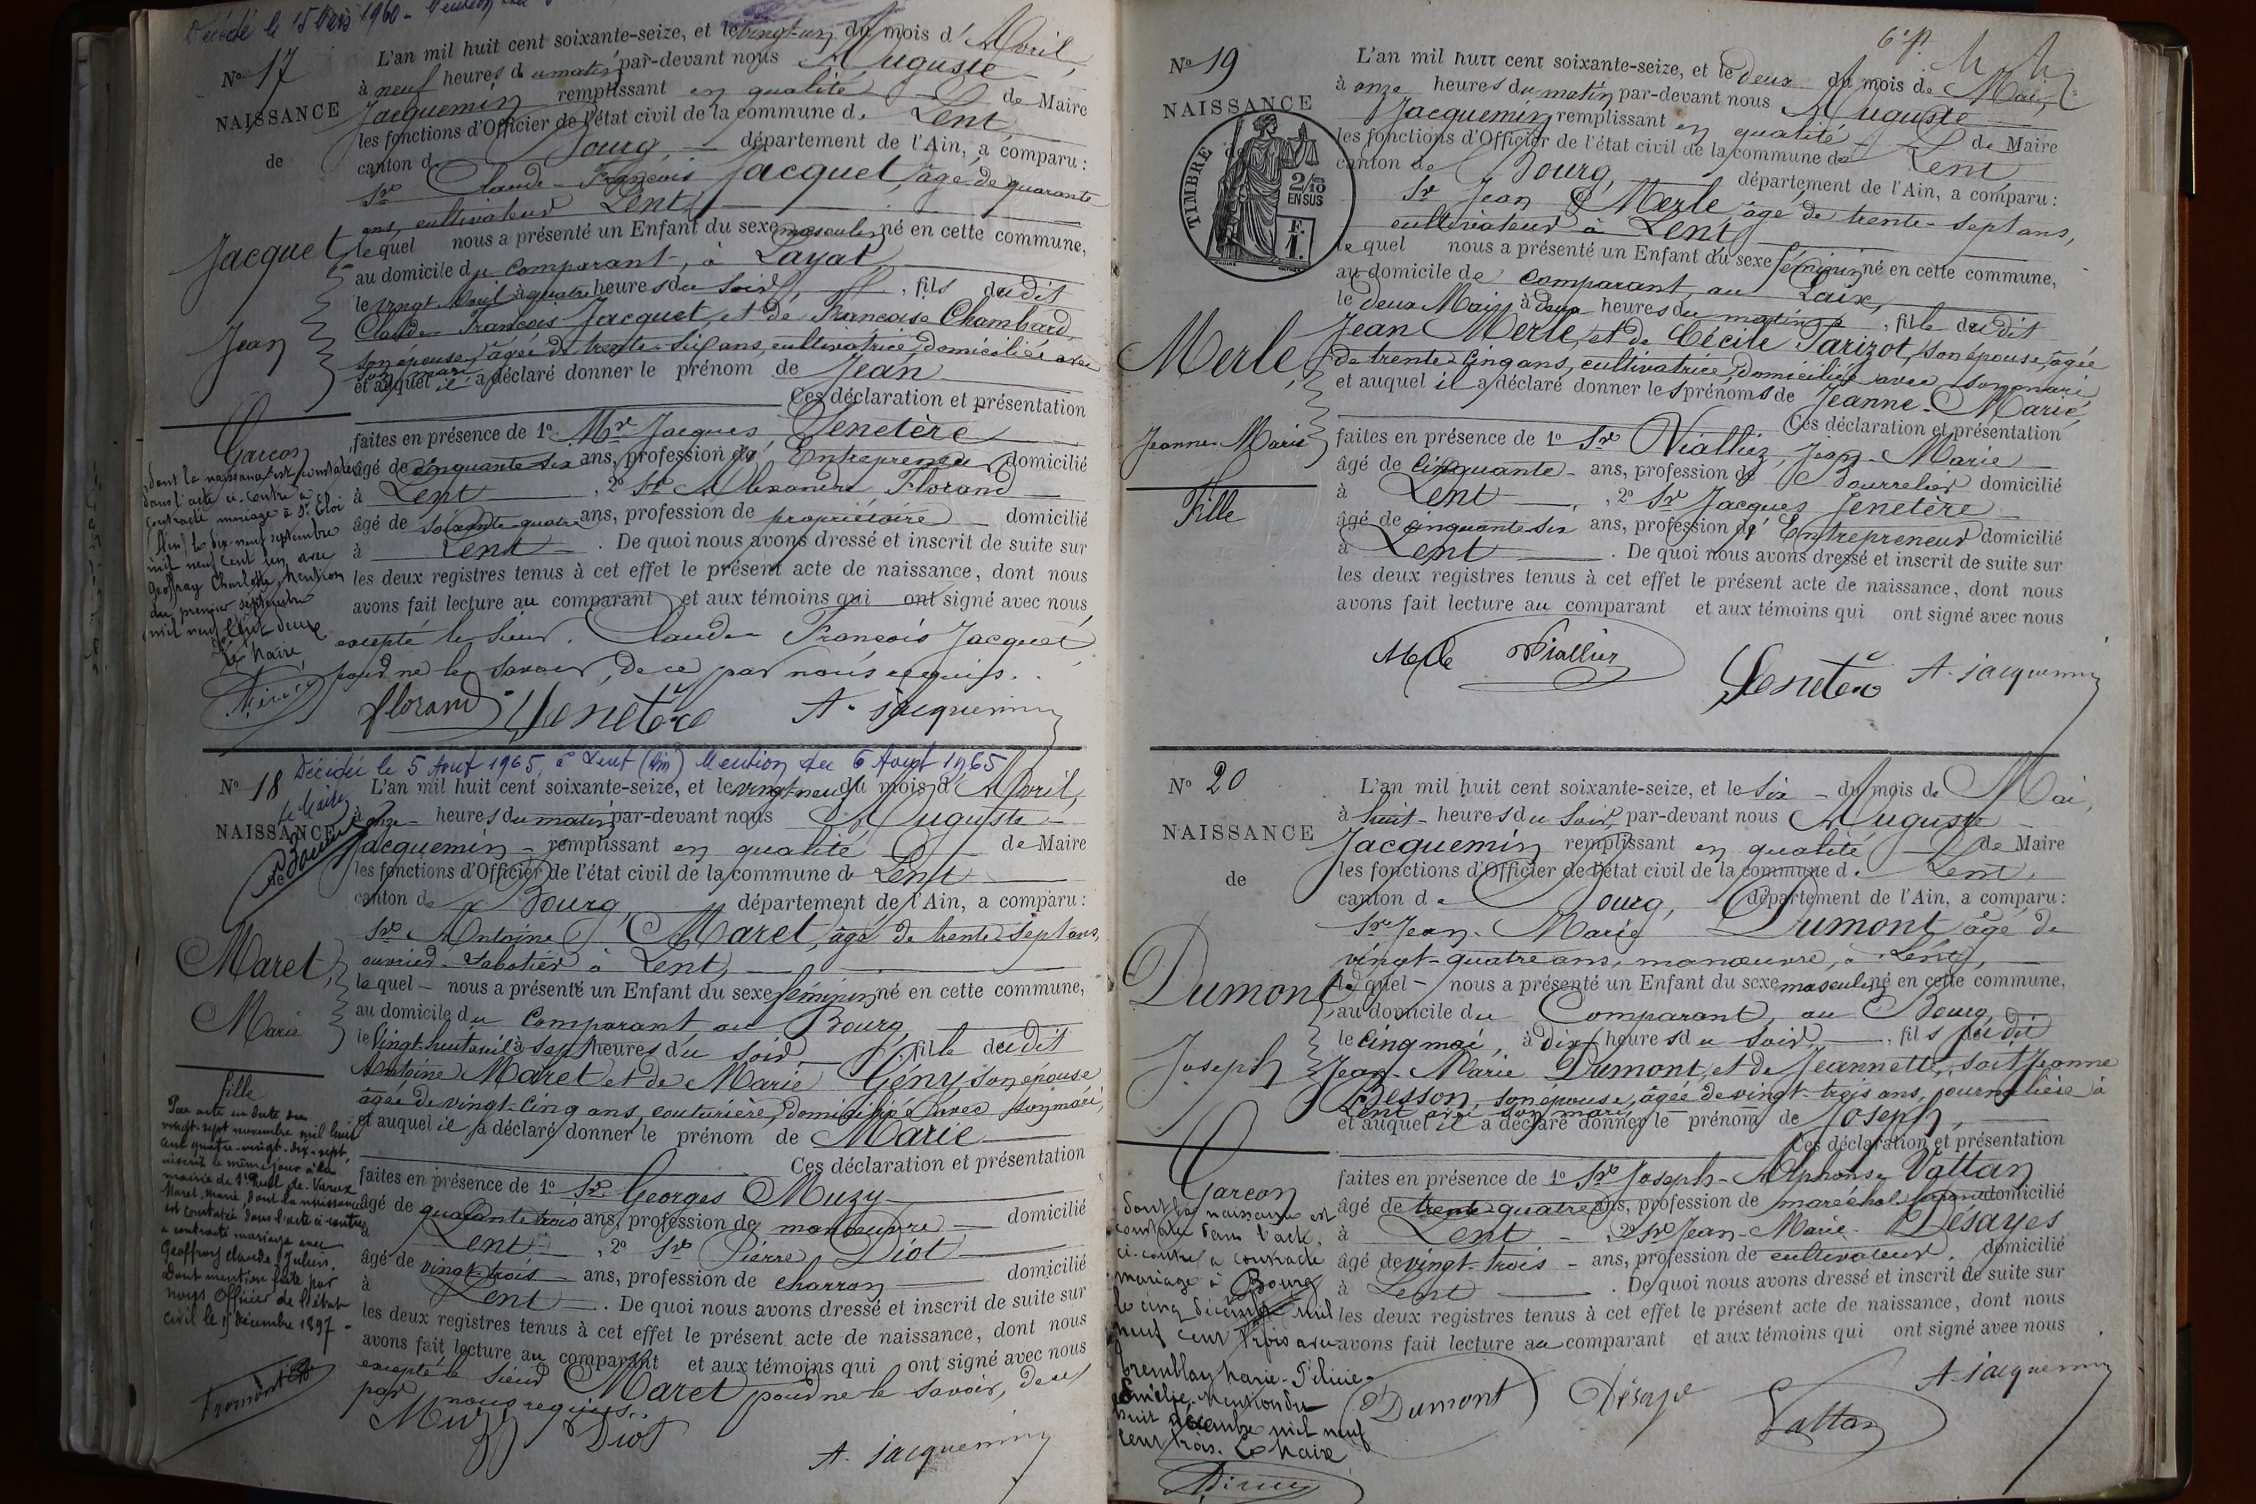 Décédé le 15 Mars 1960 - Mention du
N° 17
NAISSANCE
de
Jacquet
Jean
Garçon
dont la naissance est constatée
dans l'acte ci-contre a
contracté mariage à St Eloi
(Ain) le dix-neuf septembre
mil neuf cent un avec
Geoffray Charlotte, Mention
du premier septembre
mil neuf cent deux
Le Maire,
L'an mil huit cent soixante-seize, et le vingt-un du mois d'Avril,
à neuf heures du matin par-devant nous Auguste
Jacquemin remplissant en qualité de Maire
les fonctions d'Officier de l'état civil de la commune de Lent
canton de Bourg, département de l'Ain, a comparu :
Sr Claude-François Jacquet, âgé de quarante
ans, cultivateur Lent,
lequel nous a présenté un Enfant du sexe masculin né en cette commune,
au domicile du comparant, à Layat
le vingt Avril à quatre heures du soir, fils dudit
Claude François Jacquet, et de Françoise Chambard,
son épouse, âgée de trente-six ans, cultivatrice, domiciliée avec
son mari
et auquel il a déclaré donner le prénom de Jean
Ces déclaration et présentation
faites en présence de 1° Mr Jacques Senetère
âgé de cinquante six ans, profession d' Entrepreneur domicilié
à Lent, 2° Sr Alexandre Florand
âgé de soixante-quatre ans, profession de propriétaire domicilié
à Lent. De quoi nous avons dressé et inscrit de suite sur
les deux registres tenus à cet effet le présent acte de naissance, dont nous
avons fait lecture au comparant et aux témoins qui ont signé avec nous,
excepté le sieur Claude François Jacquet
pour ne le savoir, de ce par nous requis.
florand Senetère A. jacquemin
Décédée le 5 Aout 1965, à Lent (Ain) Mention du 6 Aout 1965
Le Maire
N° 18
NAISSANCE
Maret,
Marie
fille
Par acte en date du
vingt-sept novembre mil huit
cent quatre-vingt-dix-sept,
inscrit le même jour à la
mairie de St Paul-de-Varax
Maret Marie dont la naissance
est constatée dans l'acte ci-contre
a contracté mariage avec
Geoffray Claude-Julien.
Dont mention faite par
nous Officier de l'état
civil le 1er décembre 1897
L'an mil huit cent soixante-seize, et le vingt-neuf du mois d'Avril,
à onze heures du matin par-devant nous Auguste
Jacquemin remplissant en qualité de Maire
les fonctions d'Officier de l'état civil de la commune de Lent
canton de Bourg, département de l'Ain, a comparu :
Sr Antoine Maret, âgé de trente-sept ans,
ouvrier-sabotier à Lent,
lequel nous a présenté un Enfant du sexe féminin né en cette commune,
au domicile du comparant au Bourg,
le vingt-huit avril à sept heures du soir, fille dudit
Antoine Maret et de Marie Gény son épouse
âgée de vingt-cinq ans, couturière, domiciliée avec son mari,
et auquel il a déclaré donner le prénom de Marie
Ces déclaration et présentation
faites en présence de 1° Sr Georges Muzy
âgé de quarante trois ans, profession de manoeuvre domicilié
à Lent, 2° Sr Pierre Diot
âgé de vingt-trois ans, profession de charron domicilié
à Lent. De quoi nous avons dressé et inscrit de suite sur
les deux registres tenus à cet effet le présent acte de naissance, dont nous
avons fait lecture au comparant et aux témoins qui ont signé avec nous
excepté le sieur Maret pour ne le savoir, de ce
par nous requis.
Muzy Diot
A. jacquemin
6e f.
N° 19
NAISSANCE
de
TIMBRE
2/10 EN SUS
F. 1.
Merle,
Jeanne-Marie
Fille
L'an mil huit cent soixante-seize, et le deux du mois de Mai,
à onze heures du matin par-devant nous Auguste
Jacquemin remplissant en qualité de Maire
les fonctions d'Officier de l'état civil de la commune de Lent
canton de Bourg, département de l'Ain, a comparu :
Sr Jean Merle âgé de trente-sept ans,
cultivateur à Lent,
lequel nous a présenté un Enfant du sexe féminin né en cette commune,
au domicile de comparant, au Laix,
le deux Mai, à deux heures du matin, fille dudit
Jean Merle, et de Cécile Parizot, son épouse, âgée
de trente-cinq ans, cultivatrice, domiciliée avec son mari,
et auquel il a déclaré donner les prénoms de Jeanne-Marie,
Ces déclaration et présentation
faites en présence de 1° Sr Viallier, Jean-Marie
âgé de cinquante ans, profession de Bourrelier domicilié
à Lent, 2° Sr Jacques Senetère
âgé de cinquante six ans, profession d' Entrepreneur domicilié
à Lent. De quoi nous avons dressé et inscrit de suite sur
les deux registres tenus à cet effet le présent acte de naissance, dont nous
avons fait lecture au comparant et aux témoins qui ont signé avec nous
Merle Viallier
Senetère A. jacquemin
N° 20
NAISSANCE
de
Dumont
Joseph
Garçon
dont la naissance est
constatée dans l'acte
ci-contre a contracté
mariage à Bourg
le cinq décembre mil
neuf cent trois avec
Tremblay Marie-Félicie-
Amélie. Mention du
huit décembre mil neuf
cent trois. Le Maire
L'an mil huit cent soixante-seize, et le six du mois de Mai,
à huit heures du soir, par-devant nous Auguste
Jacquemin remplissant en qualité de Maire
les fonctions d'Officier de l'état civil de la commune de Lent,
canton de Bourg, département de l'Ain, a comparu :
Sr Jean-Marie Dumont âgé de
vingt-quatre ans, manoeuvre, à Lent,
lequel nous a présenté un Enfant du sexe masculin né en cette commune,
au domicile du Comparant, au Bourg,
le cinq mai, à dix heures du soir, fils dudit
Jean-Marie Dumont, et de Jeannette, soit Jeanne
Besson, son épouse, âgée de vingt-trois ans, journalière à
Lent avec son mari
et auquel il a déclaré donner le prénom de Joseph,
Ces déclaration et présentation
faites en présence de 1° Sr Joseph-Alphonse Vattan
âgé de trente-quatre ans, profession de maréchal ferrant domicilié
à Lent, 2° Sr Jean-Marie Désayes
âgé de vingt-trois ans, profession de cultivateur, domicilié
à Lent. De quoi nous avons dressé et inscrit de suite sur
les deux registres tenus à cet effet le présent acte de naissance, dont nous
avons fait lecture au comparant et aux témoins qui ont signé avec nous
Dumont Désaye Vattan A. jacquemin